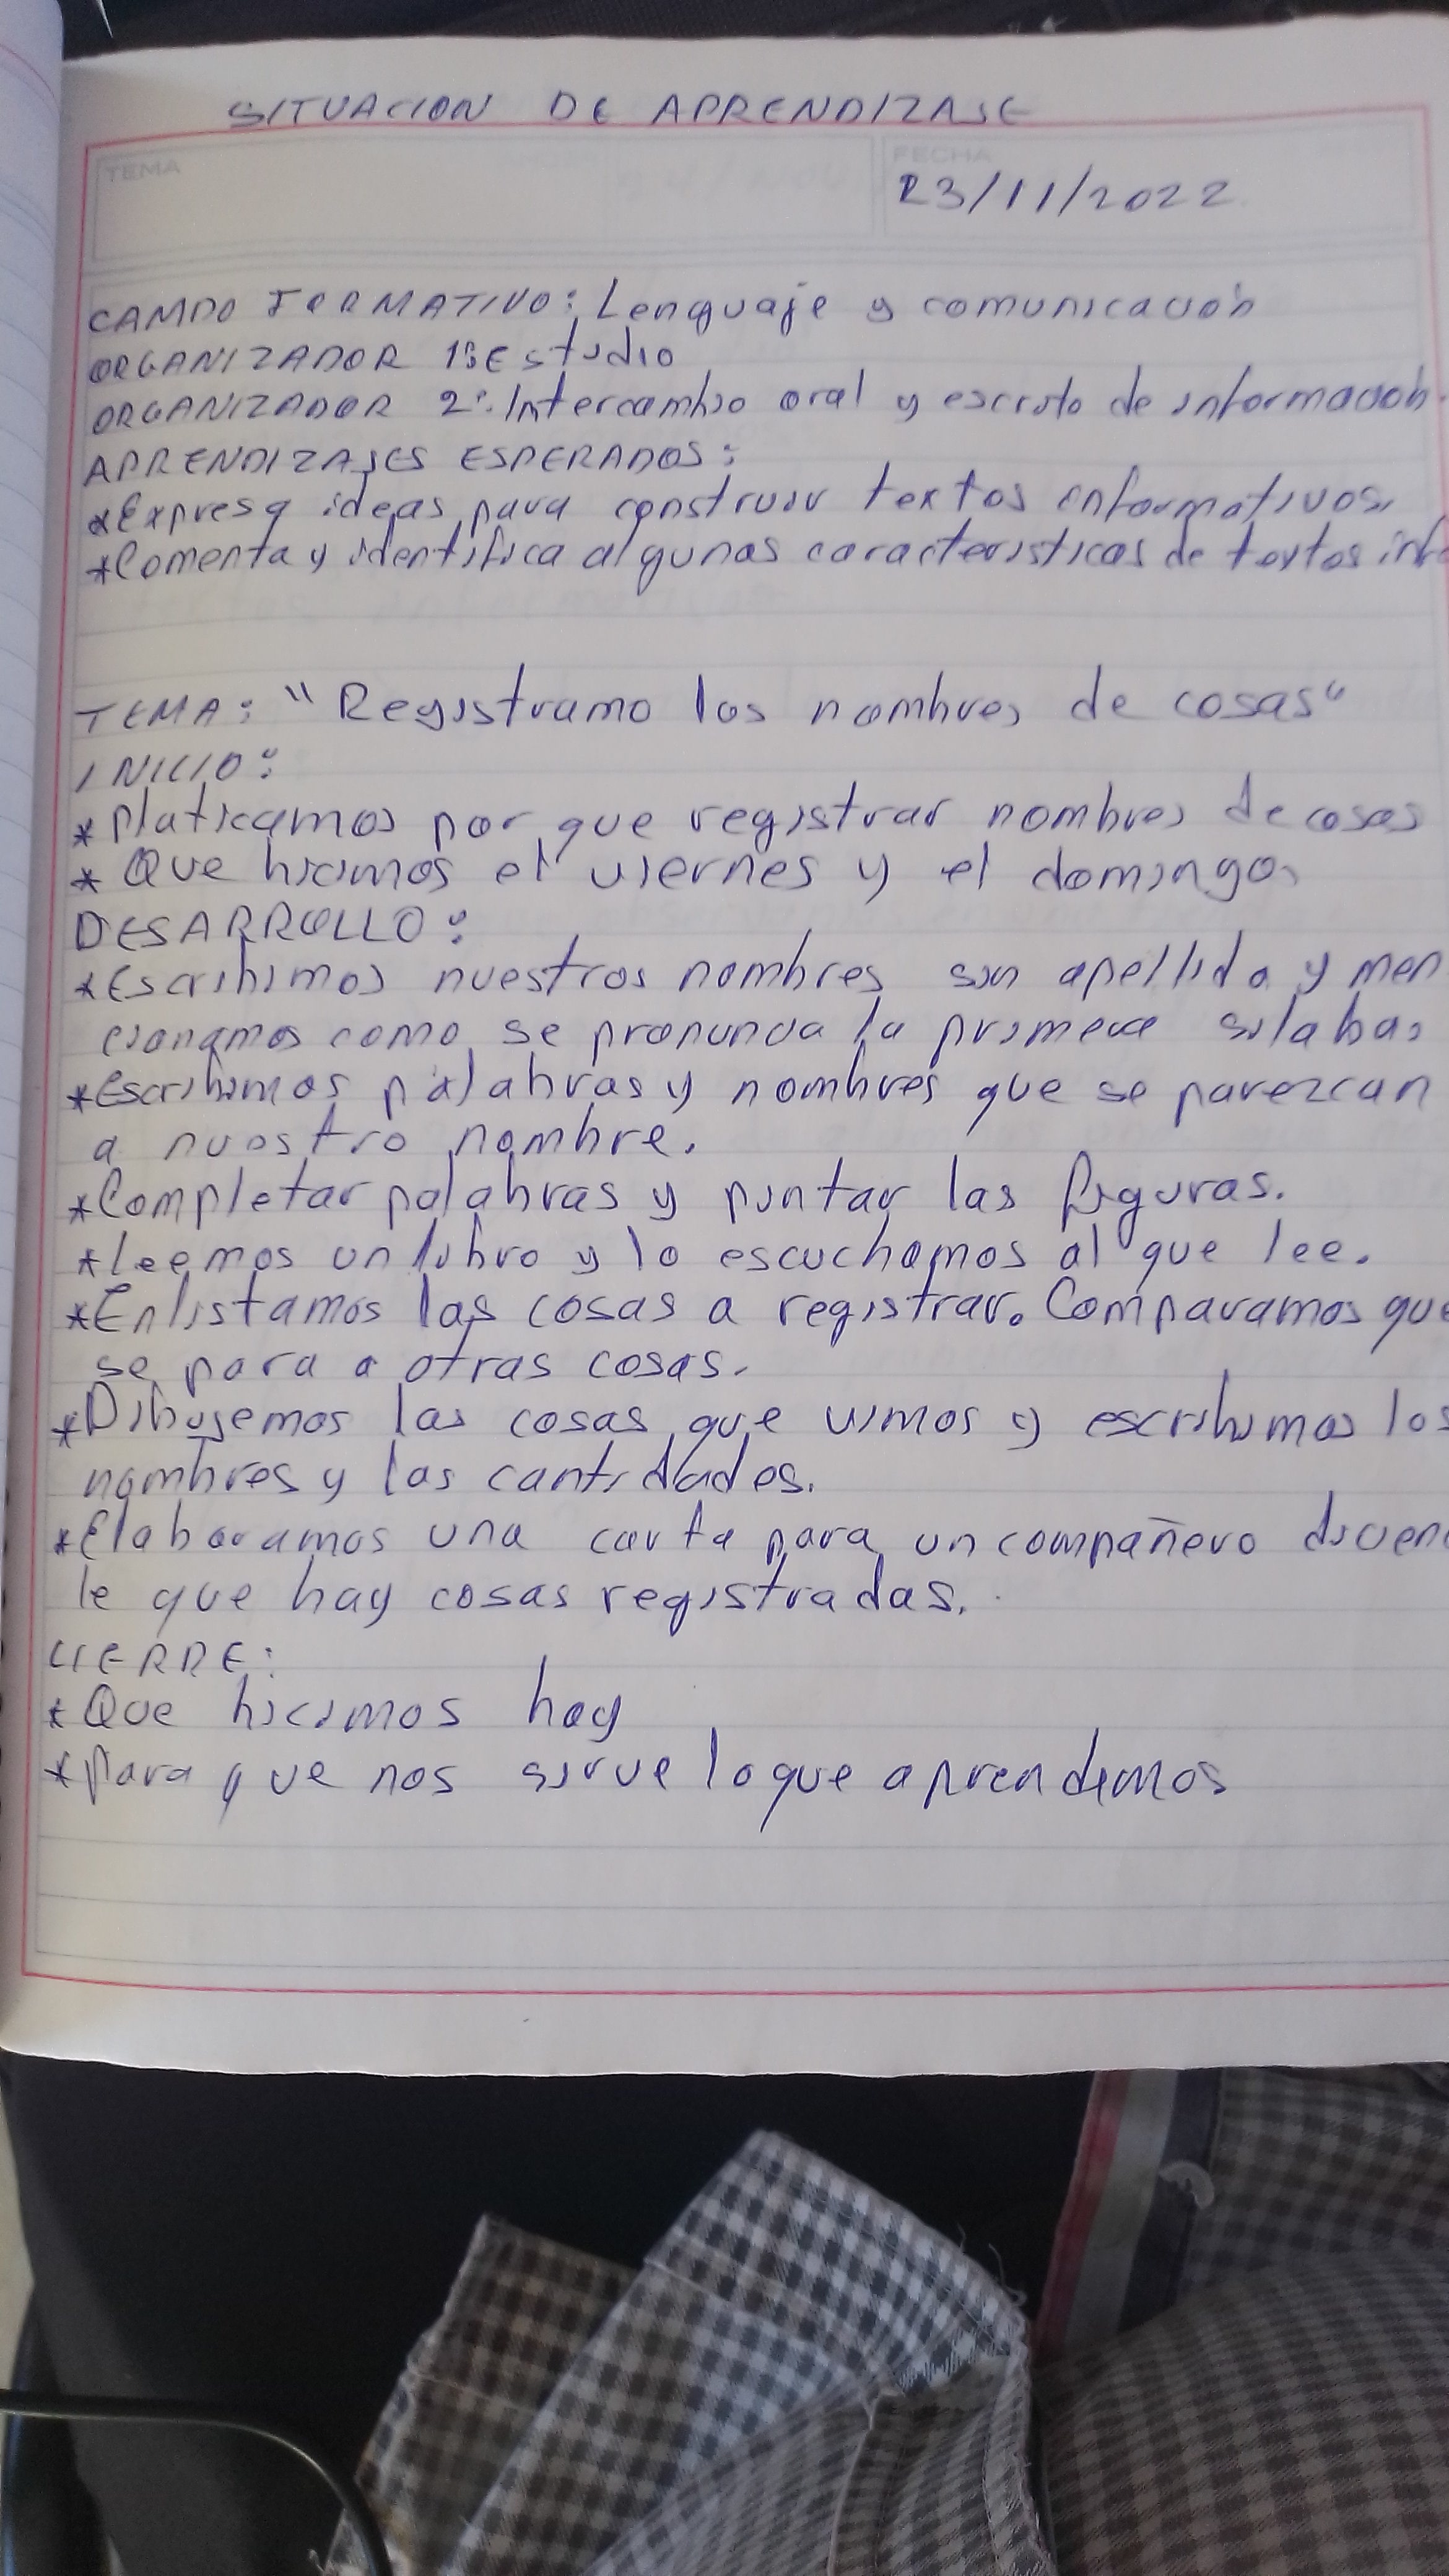 SITUACION DE APRENDIZAJE
TEMA
FECHA
23/11/2022
CAMPO FORMATIVO: Lenguaje y comunicación
ORGANIZADOR 1: Estudio
ORGANIZADOR 2: Intercambio oral y escrito de información.
APRENDIZAJES ESPERADOS:
*Expresa ideas para construir textos informativos.
*Comenta y identifica algunas caracteristicas de textos info
TEMA: "Registramo los nombres de cosas"
INICIO:
*Platicamos por que registrar nombres de cosas
* Que hicimos el viernes y el domingo.
DESARROLLO:
*Escribimos nuestros nombres sin apellido y men
cionamos como se pronuncia la primera silaba.
*Escribimos palabras y nombres que se parezcan
a nuestro nombre.
*Completar palabras y pintar las figuras.
*leemos un libro y lo escuchamos al que lee.
*Enlistamos las cosas a registrar. Comparamos que
se para a otras cosas.
*Dibujemos las cosas que vimos y escribimos los
nombres y las cantidades.
*Elaboramos una carta para un compañero dicien
le que hay cosas registradas.
CIERRE:
*Que hicimos hoy
*Para que nos sirve lo que aprendimos